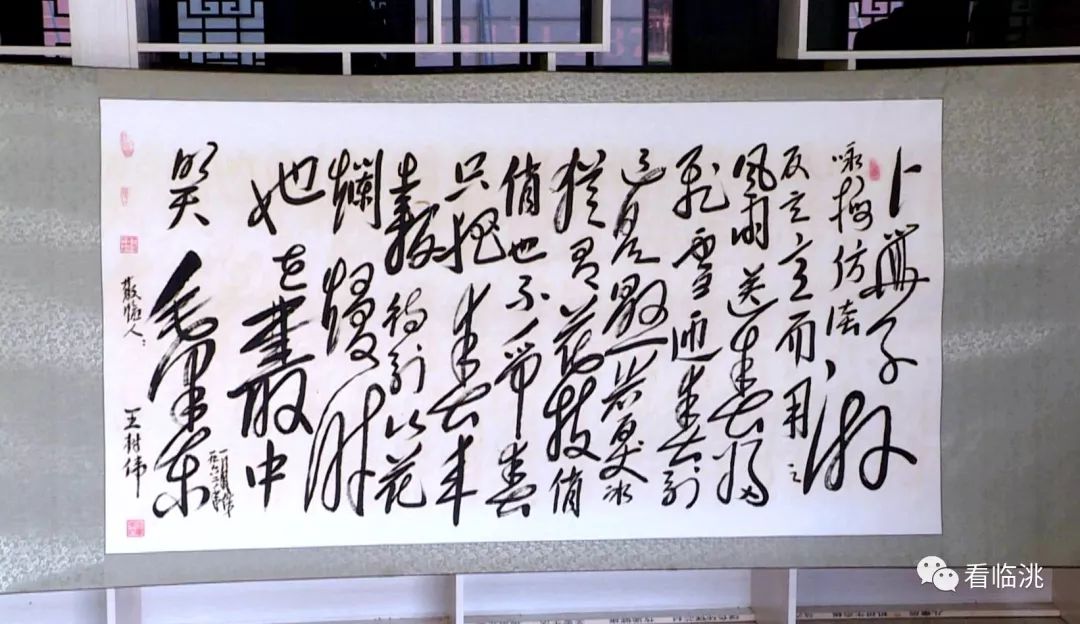 卜算子
咏梅 仿陆游
反其意而用之
风雨送春归
飞雪迎春到
已是悬崖百丈冰
犹有花枝俏
俏也不争春
只把春来
报 待到山花
烂熳时
她在丛中
笑 毛泽东
敬临人：王树伟
看临洮